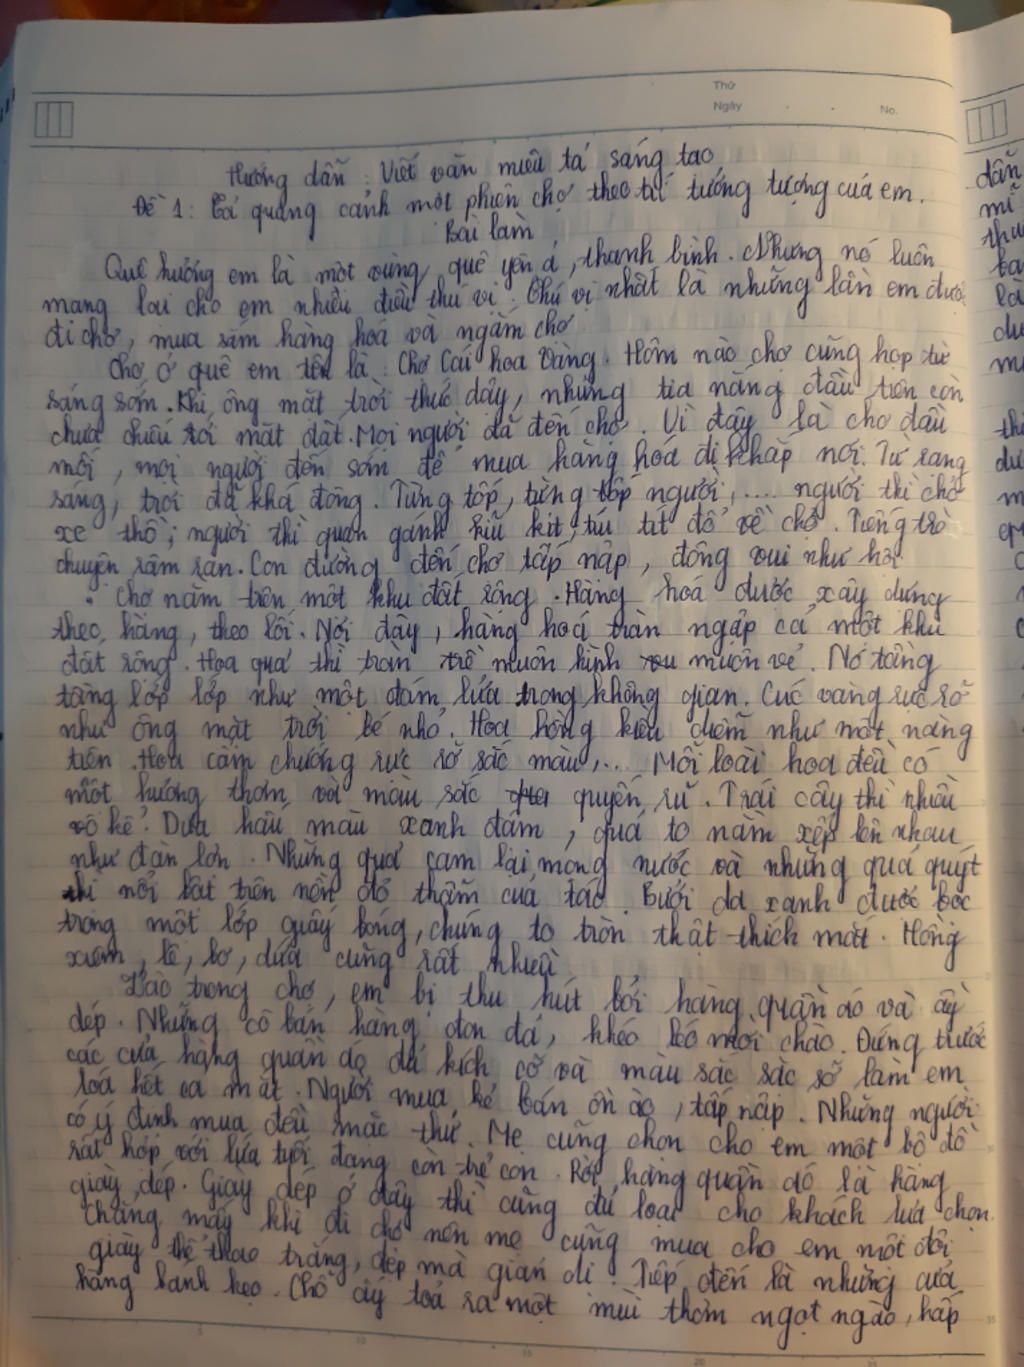 Thứ
Ngày
No.
Hướng dẫn : Viết văn miêu tả sáng tạo
Đề 1 : Tả quang cảnh một phiên chợ theo trí tưởng tượng của em.
Bài làm
Quê hương em là một vùng quê yên ả, thanh bình. Nhưng nó luôn
mang lại cho em nhiều điều thú vị. Thú vị nhất là những lần em được
đi chợ, mua sắm hàng hoá và ngắm chợ
Chợ ở quê em tên là : Chợ Cải hoa Vàng. Hôm nào chợ cũng họp từ
sáng sớm. Khi ông mặt trời thức dậy, những tia nắng đầu tiên còn
chưa chiếu rơi mặt đất. Mọi người đã đến chợ. Vì đây là chợ đầu
mối, mọi người đến sớm để mua hàng hoá đi khắp nơi. Từ rang
sáng, trời đã khá đông. Từng tốp, từng tốp người, .... người thì chở
xe thồ; người thì quan gánh kĩu kịt, túi tít đổ về chợ. Tiếng trò
chuyện râm ran. Con đường đến chợ tấp nập, đông vui như hội
Chợ nằm trên một khu đất rộng. Hàng hoá được xây dựng
theo hàng, theo lối. Nơi đây, hàng hoá tràn ngập cả một khu
đất rộng. Hoa quả thì tràn trề muôn hình muôn vẻ. Nó tầng
tầng lớp lớp như một đám lửa trong không gian. Cúc vàng rực rỡ
như ông mặt trời bé nhỏ. Hoa hồng kiều diễm như một nàng
tiên. Hoa cẩm chướng rực rỡ sắc màu,... Mỗi loài hoa đều có
một hương thơm và màu sắc quyến rũ. Trái cây thì nhiều
vô kể. Dưa hấu màu xanh đậm, quả to nằm xếp lên nhau
như đàn lợn. Những quả cam lại mọng nước và những quả quýt
thì nổi bật trên nền đỏ thẫm của táo. Bưởi da xanh được bọc
trong một lớp giấy bóng, chúng to tròn thật thích mắt. Hồng
xiêm, lê, bơ, dứa cũng rất nhiều
Vào trong chợ, em bị thu hút bởi hàng quần áo và giày
dép. Những cô bán hàng đon đả, khéo léo mời chào. Đứng trước
các cửa hàng quần áo đủ kích cỡ và màu sắc sặc sỡ làm em
loá hết cả mắt. Người mua, kẻ bán ồn ào, tấp nập. Những người
có ý định mua đều mặc thử. Mẹ cũng chọn cho em một bộ đồ
rất hợp với lứa tuổi đang còn trẻ con. Rời hàng quần áo là hàng
giày dép. Giày dép ở đây thì cũng đủ loại cho khách lựa chọn.
Chẳng mấy khi đi chợ nên mẹ cũng mua cho em một đôi
giày thể thao trắng, đẹp mà giản dị. Tiếp đến là những cửa
hàng bánh kẹo. Chỗ ấy toả ra một mùi thơm ngọt ngào, hấp